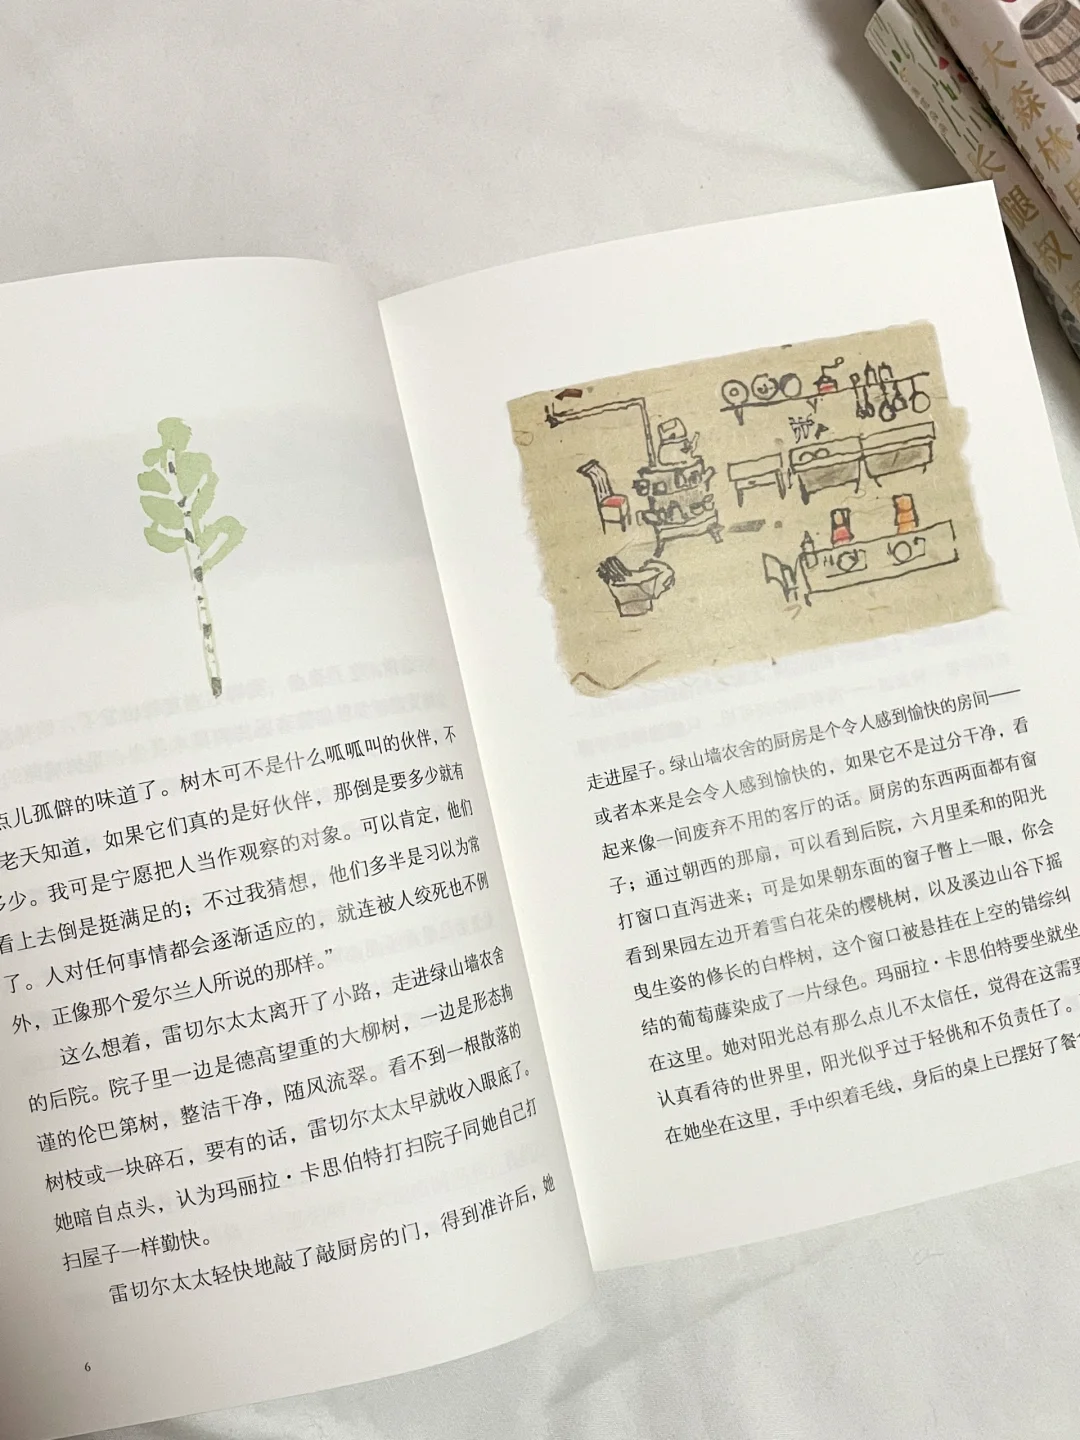 点儿孤僻的味道了。树木可不是什么呱呱叫的伙伴，不
老天知道，如果它们真的是好伙伴，那倒是要多少就有
多少。我可是宁愿把人当作观察的对象。可以肯定，他们
看上去倒是挺满足的；不过我猜想，他们多半是习以为常
了。人对任何事情都会逐渐适应的，就连被人绞死也不例
外，正像那个爱尔兰人所说的那样。”
这么想着，雷切尔太太离开了小路，走进绿山墙农舍
的后院。院子里一边是德高望重的大柳树，一边是形态拘
谨的伦巴第树，整洁干净，随风流翠。看不到一根散落的
树枝或一块碎石，要有的话，雷切尔太太早就收入眼底了。
她暗自点头，认为玛丽拉·卡思伯特打扫院子同她自己打
扫屋子一样勤快。
雷切尔太太轻快地敲了敲厨房的门，得到准许后，她
6
走进屋子。绿山墙农舍的厨房是个令人感到愉快的房间——
或者本来是会令人感到愉快的，如果它不是过分干净，看
起来像一间废弃不用的客厅的话。厨房的东西两面都有窗
子；通过朝西的那扇，可以看到后院，六月里柔和的阳光
打窗口直泻进来；可是如果朝东面的窗子瞥上一眼，你会
看到果园左边开着雪白花朵的樱桃树，以及溪边山谷下摇
曳生姿的修长的白桦树，这个窗口被悬挂在上空的错综纠
结的葡萄藤染成了一片绿色。玛丽拉·卡思伯特要坐就坐
在这里。她对阳光总有那么点儿不太信任，觉得在这需要
认真看待的世界里，阳光似乎过于轻佻和不负责任了。
在她坐在这里，手中织着毛线，身后的桌上已摆好了餐
大森林
长腿叔